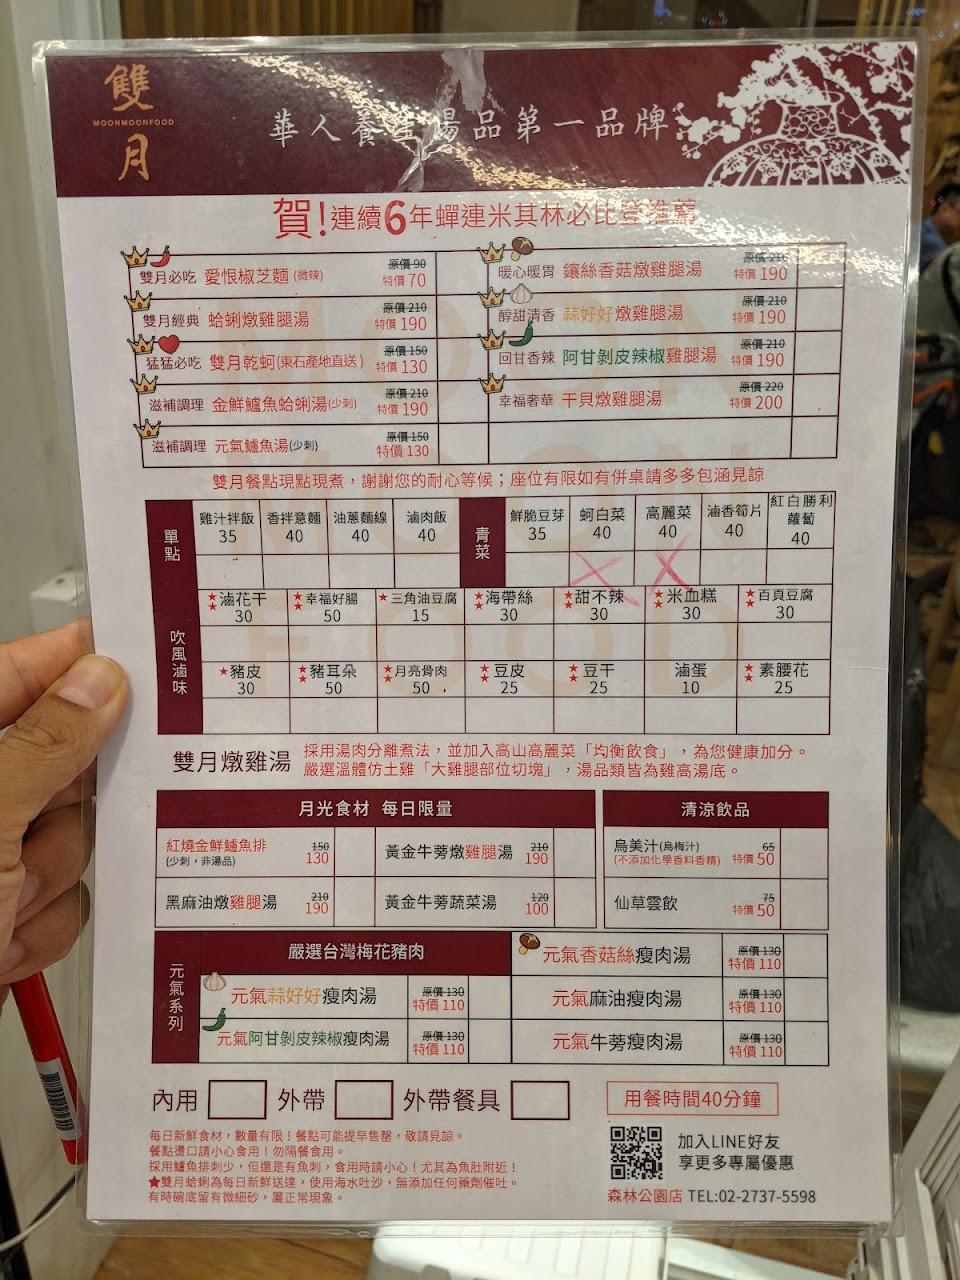 雙月
MOONMOONFOOD
華人養生湯品第一品牌
賀!連續6年蟬連米其林必比登推薦
雙月必吃 愛恨椒芝麵(微辣) 原價90 特價70
暖心暖胃 鑲絲香菇燉雞腿湯 原價210 特價190
雙月經典 蛤蜊燉雞腿湯 原價210 特價190
醇甜清香 蒜好好燉雞腿湯 原價210 特價190
猛猛必吃 雙月乾蚵(東石產地直送) 原價150 特價130
回甘香辣 阿甘剝皮辣椒雞腿湯 原價210 特價190
滋補調理 金鮮鱸魚蛤蜊湯(少刺) 原價210 特價190
幸福奢華 干貝燉雞腿湯 原價220 特價200
滋補調理 元氣鱸魚湯(少刺) 原價150 特價130
雙月餐點現點現煮，謝謝您的耐心等候；座位有限如有併桌請多多包涵見諒
單點
雞汁拌飯 35
香拌意麵 40
油蔥麵線 40
滷肉飯 40
青菜
鮮脆豆芽 35
蚵白菜 40
高麗菜 40
滷香筍片 40
紅白勝利蘿蔔 40
吹風滷味
★★滷花干 30
★★幸福好腸 50
★三角油豆腐 15
★★海帶絲 30
★★甜不辣 30
★★米血糕 30
★★百頁豆腐 30
★豬皮 30
★★豬耳朵 50
★★月亮骨肉 50
★★豆皮 25
★★豆干 25
滷蛋 10
★★素腰花 25
雙月燉雞湯
採用湯肉分離煮法，並加入高山高麗菜「均衡飲食」，為您健康加分。
嚴選溫體仿土雞「大雞腿部位切塊」，湯品類皆為雞高湯底。
月光食材 每日限量
紅燒金鮮鱸魚排 150
(少刺，非湯品) 130
黃金牛蒡燉雞腿湯 210 190
黑麻油燉雞腿湯 210 190
黃金牛蒡蔬菜湯 120 100
清涼飲品
烏美汁(烏梅汁) 65
(不添加化學香料香精) 特價50
仙草雲飲 75 特價50
元氣系列
嚴選台灣梅花豬肉
元氣香菇絲瘦肉湯 原價130 特價110
元氣蒜好好瘦肉湯 原價130 特價110
元氣麻油瘦肉湯 原價130 特價110
元氣阿甘剝皮辣椒瘦肉湯 原價130 特價110
元氣牛蒡瘦肉湯 原價130 特價110
內用 外帶 外帶餐具 用餐時間40分鐘
每日新鮮食材，數量有限！餐點可能提早售罄，敬請見諒。
餐點燙口請小心食用！勿隔餐食用。
採用鱸魚排刺少，但還是有魚刺，食用時請小心！尤其為魚肚附近！
★雙月蛤蜊為每日新鮮送達，使用海水吐沙，無添加任何藥劑催吐。
有時碗底留有微細砂，屬正常現象。
加入LINE好友
享更多專屬優惠
森林公園店 TEL:02-2737-5598